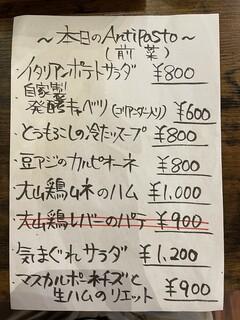 ～本日のAntipasto～
(前菜)
・イタリアンポテトサラダ ¥800
・自家製
発酵キャベツ(コリアンダー入り) ¥600
・とうもろこしの冷たいスープ ¥800
・豆アジのカルピオーネ ¥800
・大山鶏ムネのハム ¥1,000
・大山鶏レバーのパテ ¥900
・気まぐれサラダ ¥1,200
・マスカルポーネチーズと
生ハムのリエット ¥900